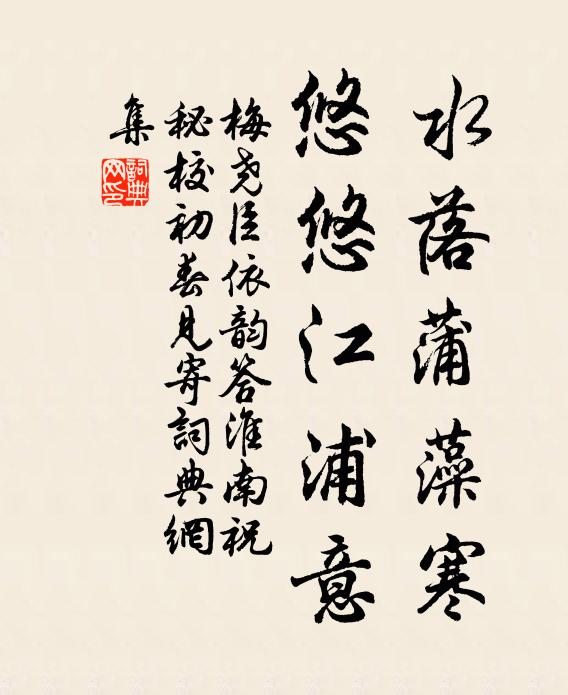 水落蒲藻寒
悠悠江浦意
梅尧臣依韵答淮南祝
秘校初春见寄詞典網
集
詞典
网印